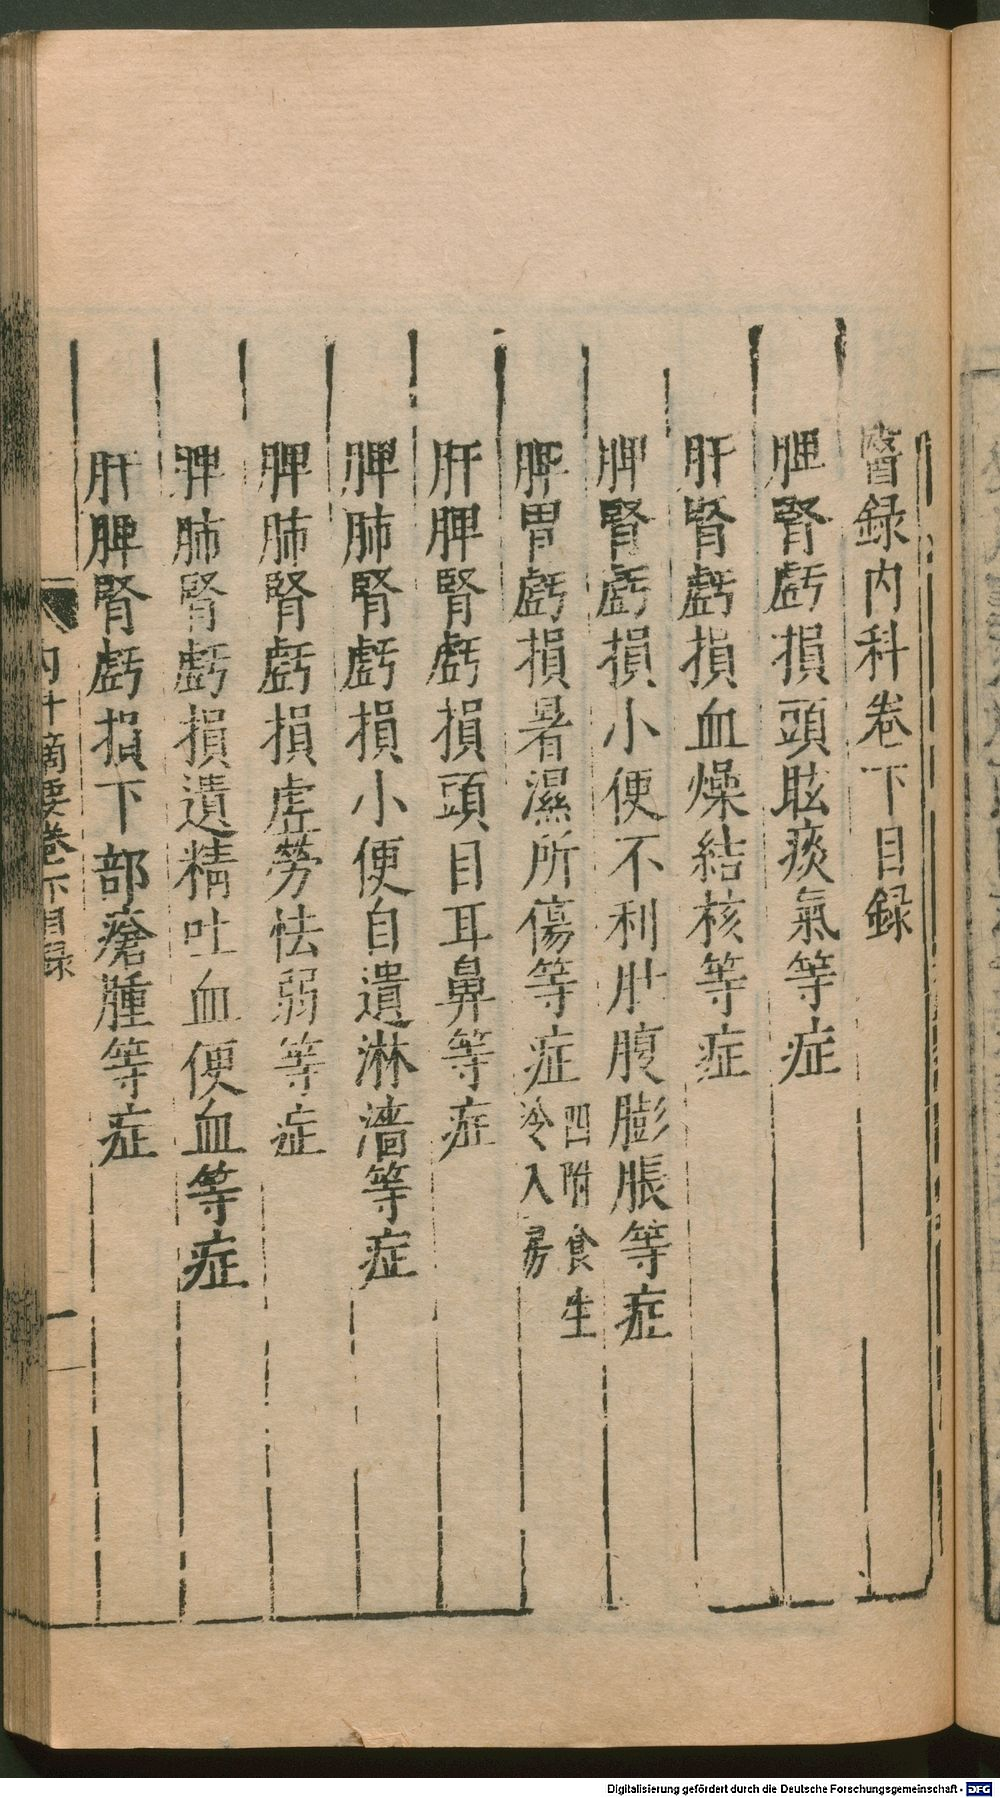 醫録内科卷下目録
脾腎虧損頭眩痰氣等症
肝腎虧損血燥結核等症
脾腎虧損小便不利肚腹膨脹等症
脾胃虧損暑濕所傷等症四附食生冷入房
肝脾腎虧損頭目耳鼻等症
脾肺腎虧損小便自遺淋濇等症
脾肺腎虧損虚勞怯弱等症
脾肺腎虧損遺精吐血便血等症
肝脾腎虧損下部瘡腫等症
内科摘要卷下目録
一
Digitalisierung gefördert durch die Deutsche Forschungsgemeinschaft - DFG